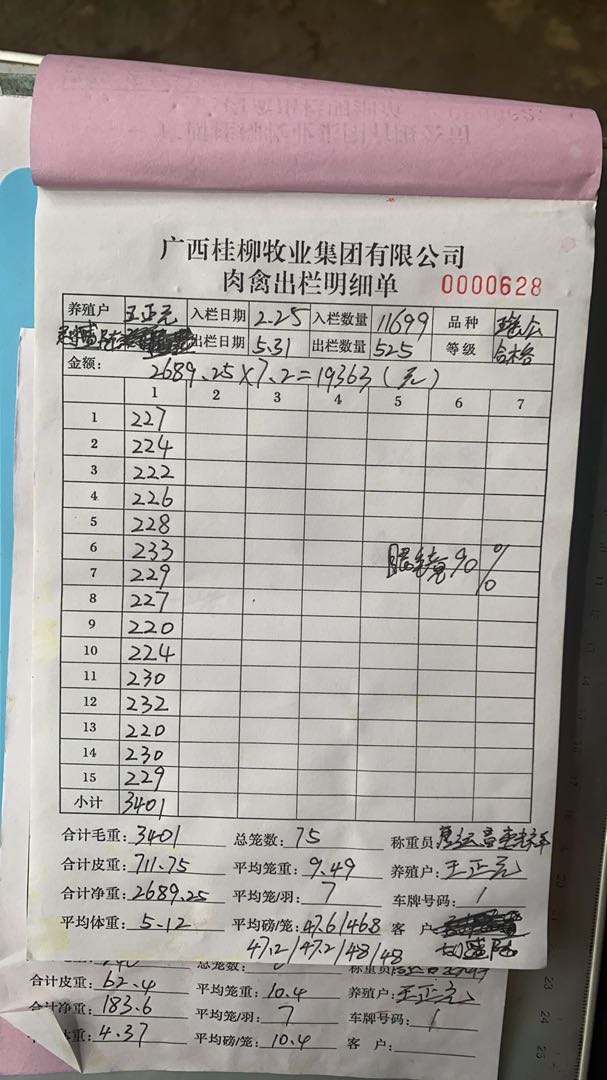 广西桂柳牧业集团有限公司
肉禽出栏明细单 0000628
养殖户 王正元 入栏日期 2.25 入栏数量 11699 品种
出栏日期 5.31 出栏数量 525 等级 合格
金额: 2689.25×7.2=19363(元)
1 2 3 4 5 6 7
1 227
2 224
3 222
4 226
5 228
6 233
7 229
眼毛竟90%
8 227
9 220
10 224
11 230
12 232
13 220
14 230
15 229
小计 3401
合计毛重: 3401 总笼数: 75 称重员
合计皮重: 711.75 平均笼重: 9.49 养殖户: 王正元
合计净重: 2689.25 平均笼/羽: 7 车牌号码: 1
平均体重: 5.12 平均磅/笼: 47.6/468 客户
47.2/47.2/48/48
总笼数: 称重员
合计皮重: 62.4 平均笼重: 10.4 养殖户: 王正元
合计净重: 183.6 平均笼/羽: 7 车牌号码: 1
体重: 4.37 平均磅/笼: 10.4 客户: